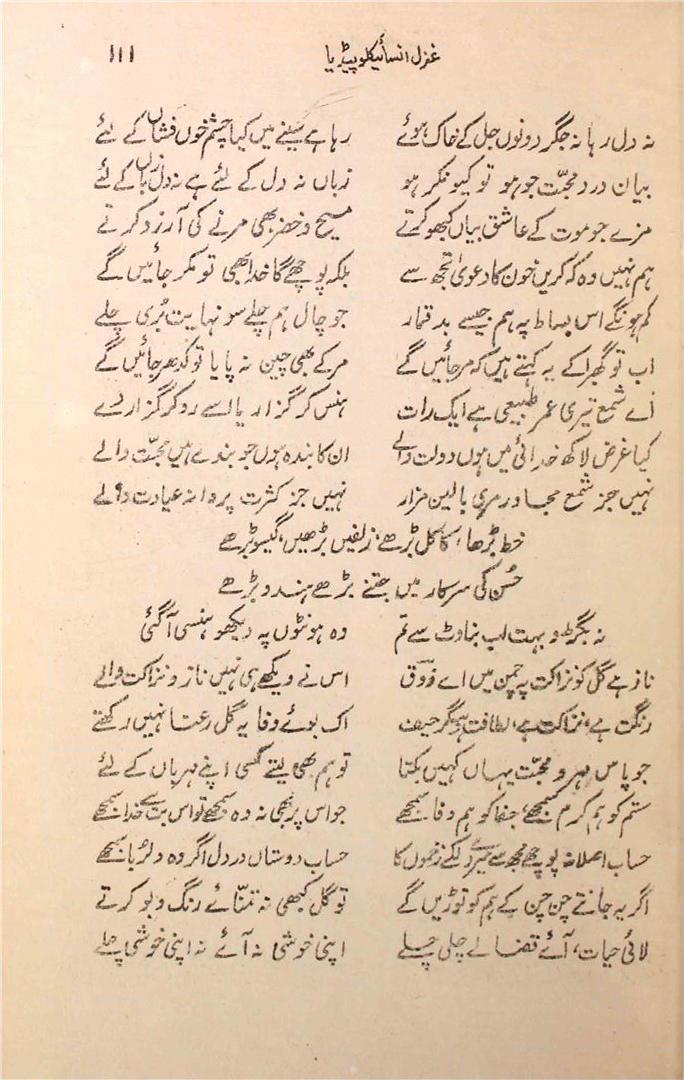 غزل انسائیکلوپیڈیا ۱۱۱
نہ دل رہا نہ جگر دونوں جل کے خاک ہوئے رہا ہے سینے میں کیا چشم خوں فشاں کے لئے
بیان درد محبّت جو ہو تو کیونکر ہو زباں نہ دل کے لئے ہے نہ دل زباں کے لئے
مزے جو موت کے عاشق بیاں کبھو کرتے مسیح و خضر بھی مرنے کی آرزو کرتے
ہم نہیں وہ کہ کریں خون کا دعویٰ تجھ سے بلکہ پوچھے گا خدا بھی تو مکر جائیں گے
کم ہونگے اس بساط پہ ہم جیسے بد قمار جو چال ہم چلے سو نہایت بُری چلے
اب تو گھبرا کے یہ کہتے ہیں کہ مر جائیں گے مر کے بھی چین نہ پایا تو کدھر جائیں گے
اے شمع تیری عمر طبیعی ہے ایک رات ہنس کر گزار یا اسے رو کر گزار دے
کیا غرض لاکھ خدائی میں ہوں دولت والے ان کا بندہ ہوں جو بندے ہیں محبّت والے
نہیں جز شمع مجاور مری بالین مزار نہیں جز کثرت پروانہ عیادت والے
خط بڑھا، کاکل بڑھے، زلفیں بڑھیں، گیسو بڑھے
حُسن کی سرکار میں جتنے بڑھے ہندو بڑھے
نہ بگڑو بہت لب بناوٹ سے تم وہ ہونٹوں پہ دیکھو ہنسی آ گئی
ناز ہے گل کو نزاکت پہ چمن میں اے ذوق اس نے دیکھے ہی نہیں ناز و نزاکت والے
رنگت ہے، نزاکت ہے، لطافت ہے مگر حیف اک بوئے وفا یہ گل رعنا نہیں رکھتے
جو پاس مہر و محبّت یہاں کہیں بکتا تو ہم بھی لیتے کسی اپنے مہرباں کے لئے
ستم کو ہم کرم سمجھے، جفا کو ہم وفا سمجھے جو اس پر بھی نہ وہ سمجھے تو اس بت سے خدا سمجھے
حساب اصلا نہ پوچھے مجھ سے میرے دل کے زخموں کا حساب دوستاں در دل اگر وہ دلربا سمجھے
اگر یہ جانتے چن چن کے ہم کو توڑیں گے تو گل کبھی نہ تمنّائے رنگ و بو کرتے
لائی حیات، آئے قضا لے چلی چلے اپنی خوشی نہ آئے نہ اپنی خوشی چلے